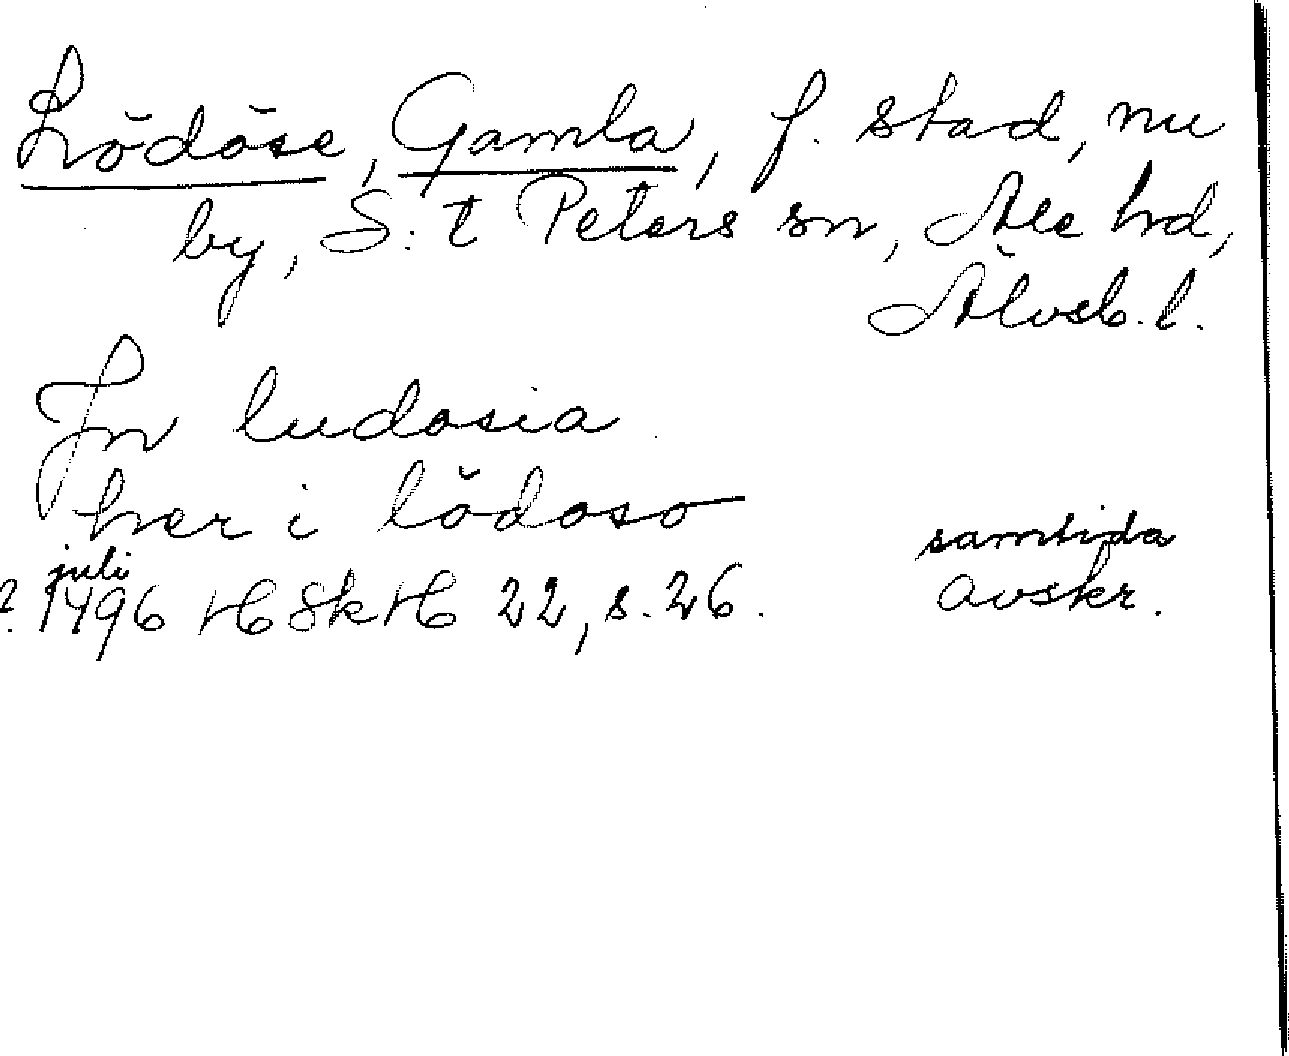 Lödöse, Gamla, f. stad, nu
by, S:t Peters sn, Ale hd,
Älvsb. l.
In ludosia
her i lödoso
juli
1496 HSkH 22, s. 26.
samtida
avskr.